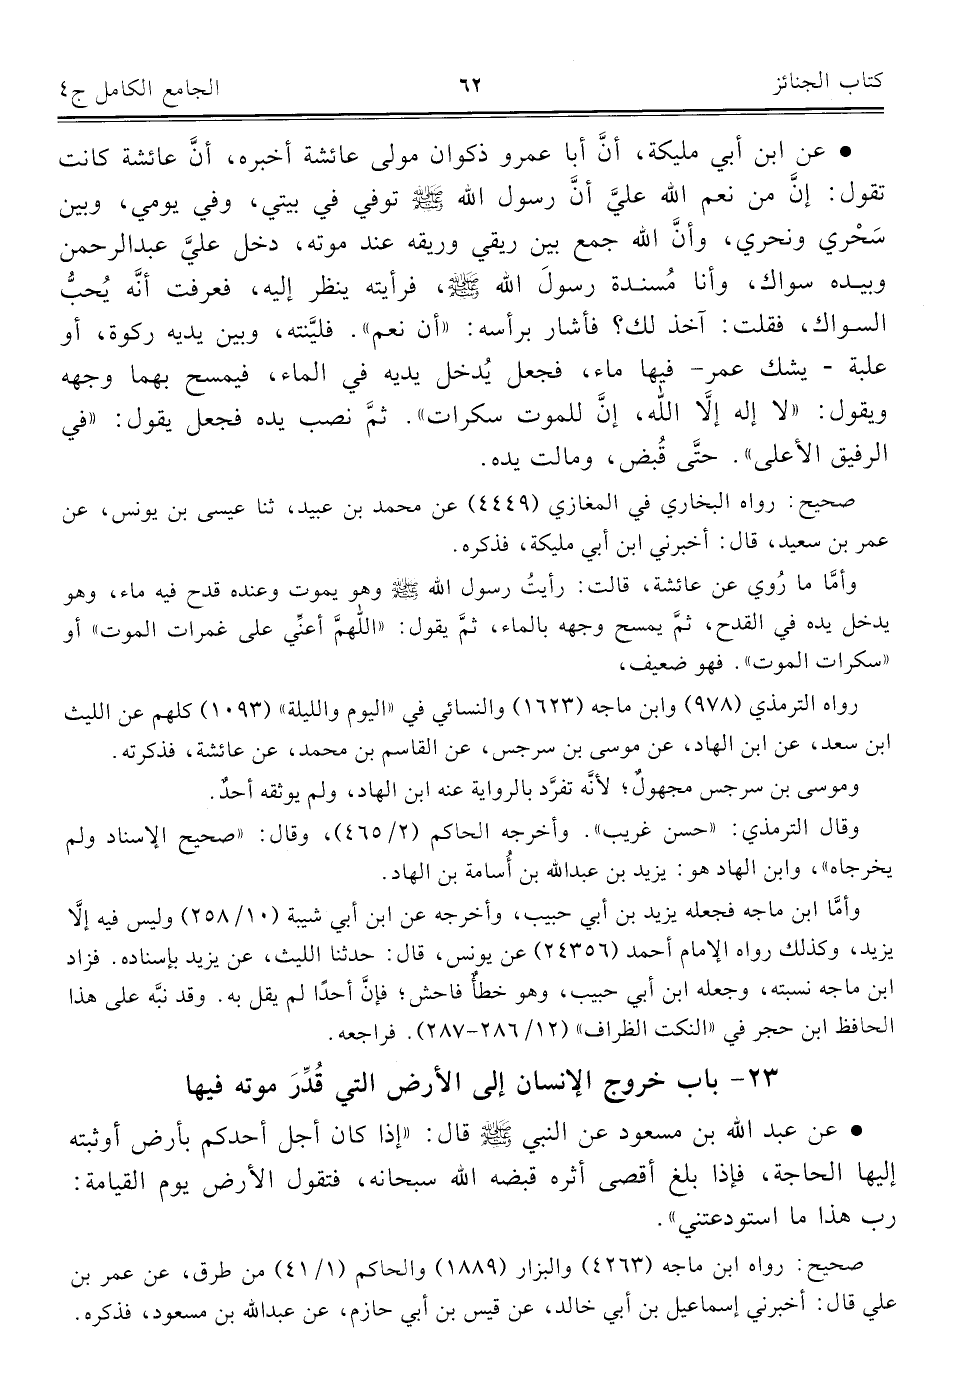 كتاب الجنائز ٦٢ الجامع الكامل ج٤
● عن ابن أبي مليكة، أنَّ أبا عمرو ذكوان مولى عائشة أخبره، أنَّ عائشة كانت
تقول: إنَّ من نعم الله عليَّ أنَّ رسول الله ﷺ توفي في بيتي، وفي يومي، وبين
سَحْري ونحري، وأنَّ الله جمع بين ريقي وريقه عند موته، دخل عليَّ عبدالرحمن
وبيده سواك، وأنا مُسندة رسولَ الله ﷺ، فرأيته ينظر إليه، فعرفت أنَّه يُحبُّ
السواك، فقلت: آخذ لك؟ فأشار برأسه: «أن نعم». فليَّنته، وبين يديه ركوة، أو
علبة - يشك عمر- فيها ماء، فجعل يُدخل يديه في الماء، فيمسح بهما وجهه
ويقول: «لا إله إلَّا اللَّه، إنَّ للموت سكرات». ثمَّ نصب يده فجعل يقول: «في
الرفيق الأعلى». حتَّى قُبض، ومالت يده.
صحيح: رواه البخاري في المغازي (٤٤٤٩) عن محمد بن عبيد، ثنا عيسى بن يونس، عن
عمر بن سعيد، قال: أخبرني ابن أبي مليكة، فذكره.
وأمَّا ما رُوي عن عائشة، قالت: رأيتُ رسول الله ﷺ وهو يموت وعنده قدح فيه ماء، وهو
يدخل يده في القدح، ثمَّ يمسح وجهه بالماء، ثمَّ يقول: «اللَّهمَّ أعنِّي على غمرات الموت» أو
«سكرات الموت». فهو ضعيف،
رواه الترمذي (٩٧٨) وابن ماجه (١٦٢٣) والنسائي في «اليوم والليلة» (١٠٩٣) كلهم عن الليث
ابن سعد، عن ابن الهاد، عن موسى بن سرجس، عن القاسم بن محمد، عن عائشة، فذكرته.
وموسى بن سرجس مجهولٌ؛ لأنَّه تفرَّد بالرواية عنه ابن الهاد، ولم يوثقه أحدٌ.
وقال الترمذي: «حسن غريب». وأخرجه الحاكم (٢/ ٤٦٥)، وقال: «صحيح الإسناد ولم
يخرجاه»، وابن الهاد هو: يزيد بن عبدالله بن أُسامة بن الهاد.
وأمَّا ابن ماجه فجعله يزيد بن أبي حبيب، وأخرجه عن ابن أبي شيبة (١٠/ ٢٥٨) وليس فيه إلَّا
يزيد، وكذلك رواه الإمام أحمد (٢٤٣٥٦) عن يونس، قال: حدثنا الليث، عن يزيد بإسناده. فزاد
ابن ماجه نسبته، وجعله ابن أبي حبيب، وهو خطأٌ فاحش؛ فإنَّ أحدًا لم يقل به. وقد نبَّه على هذا
الحافظ ابن حجر في «النكت الظراف» (١٢/ ٢٨٦-٢٨٧). فراجعه.
٢٣- باب خروج الإنسان إلى الأرض التي قُدِّرَ موته فيها
● عن عبد الله بن مسعود عن النبي ﷺ قال: «إذا كان أجل أحدكم بأرض أوثبته
إليها الحاجة، فإذا بلغ أقصى أثره قبضه الله سبحانه، فتقول الأرض يوم القيامة:
رب هذا ما استودعتني».
صحيح: رواه ابن ماجه (٤٢٦٣) والبزار (١٨٨٩) والحاكم (١/ ٤١) من طرق، عن عمر بن
علي قال: أخبرني إسماعيل بن أبي خالد، عن قيس بن أبي حازم، عن عبدالله بن مسعود، فذكره.